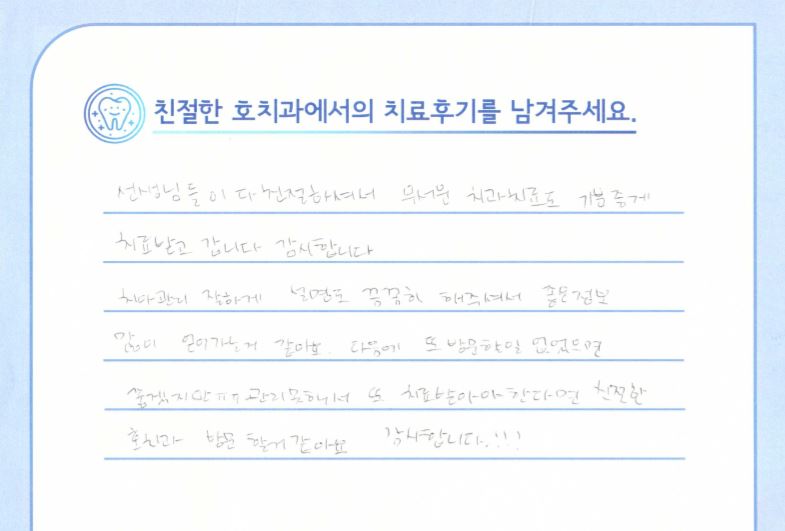 친절한 호치과에서의 치료후기를 남겨주세요.
선생님들이 다 친절하셔서 무서운 치과치료도 기분좋게
치료받고 갑니다 감사합니다
치아관리 잘하게 설명도 꼼꼼히 해주셔서 좋은정보
많이 얻어가는거 같아요. 다음에 또 방문할일 없었으면
좋겠지만ㅠㅠ 관리못해서 또 치료받아야 한다면 친절한
호치과 방문 할거같아요 감사합니다.!!!